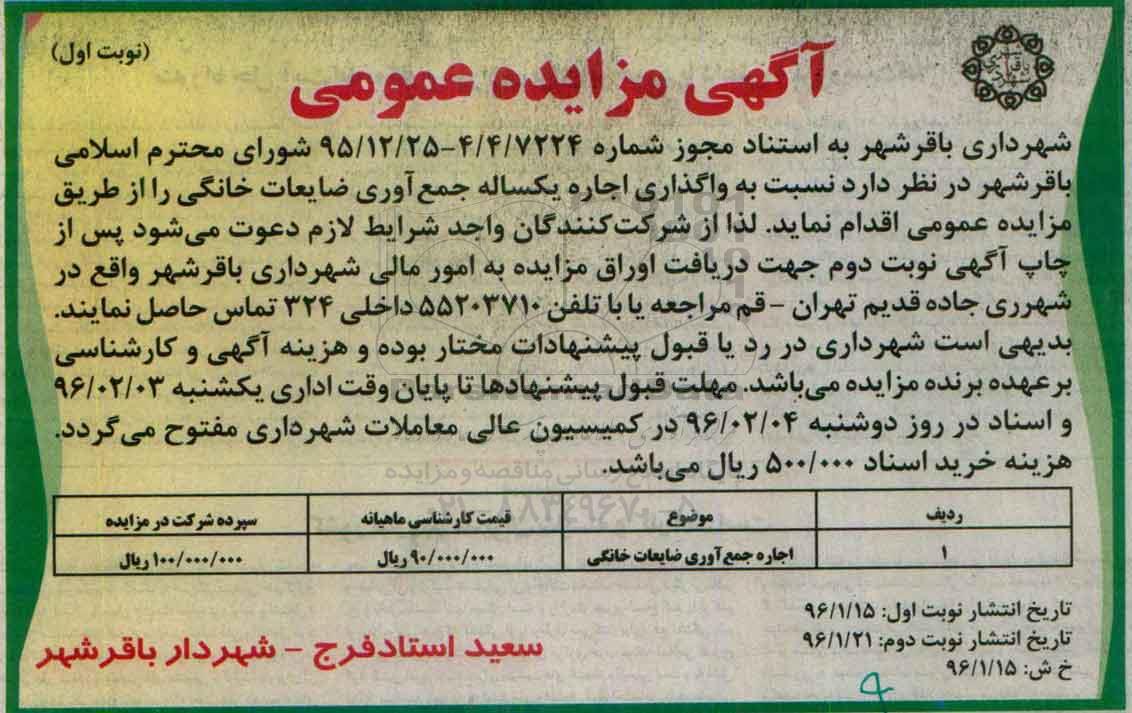 (نوبت اول)
آگهی مزایده عمومی
شهرداری باقرشهر به استناد مجوز شماره ۴/۴/۷۲۲۴-۹۵/۱۲/۲۵ شورای محترم اسلامی
باقرشهر در نظر دارد نسبت به واگذاری اجاره یکساله جمع‌آوری ضایعات خانگی را از طریق
مزایده عمومی اقدام نماید. لذا از شرکت‌کنندگان واجد شرایط لازم دعوت می‌شود پس از
چاپ آگهی نوبت دوم جهت دریافت اوراق مزایده به امور مالی شهرداری باقرشهر واقع در
شهرری جاده قدیم تهران - قم مراجعه یا با تلفن ۵۵۲۰۳۷۱۰ داخلی ۳۲۴ تماس حاصل نمایند.
بدیهی است شهرداری در رد یا قبول پیشنهادات مختار بوده و هزینه آگهی و کارشناسی
برعهده برنده مزایده می‌باشد. مهلت قبول پیشنهادها تا پایان وقت اداری یکشنبه ۹۶/۰۲/۰۳
و اسناد در روز دوشنبه ۹۶/۰۲/۰۴ در کمیسیون عالی معاملات شهرداری مفتوح می‌گردد.
هزینه خرید اسناد ۵۰۰/۰۰۰ ریال می‌باشد.
ردیف موضوع قیمت کارشناسی ماهیانه سپرده شرکت در مزایده
۱ اجاره جمع‌آوری ضایعات خانگی ۹۰/۰۰۰/۰۰۰ ریال ۱۰۰/۰۰۰/۰۰۰ ریال
تاریخ انتشار نوبت اول: ۹۶/۱/۱۵
تاریخ انتشار نوبت دوم: ۹۶/۱/۲۱
خ ش: ۹۶/۱/۱۵
سعید استادفرج - شهردار باقرشهر